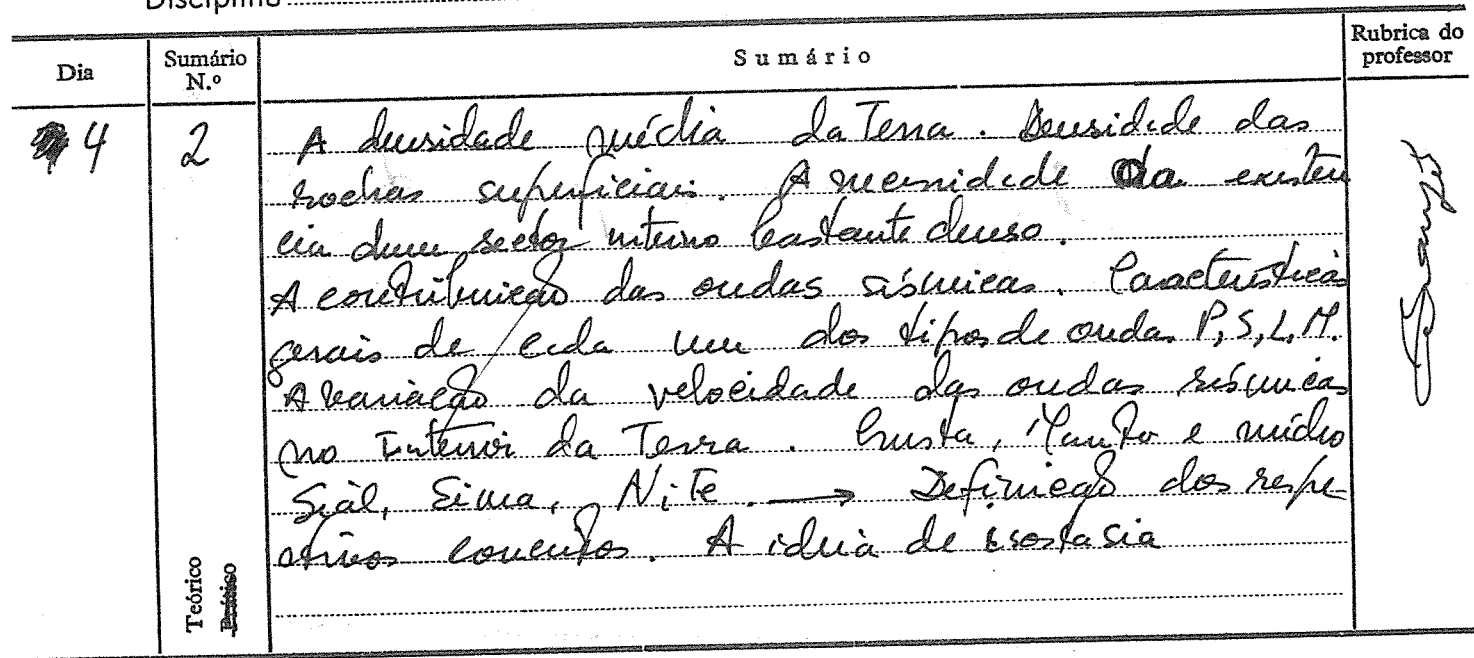 Disciplina
Dia
Sumário N.º
Sumário
Rubrica do professor
4
2
A densidade média da Terra. Densidade das
rochas superficiais. A necessidade da existên
cia dum sector interno bastante denso.
A contribuição das ondas sísmicas. Características
gerais de cada um dos tipos de ondas P, S, L, M.
A variação da velocidade das ondas sísmicas
no Interior da Terra. Crusta, Manto e núcleo
Sial, Sima, Nife. → Definição dos respe-
ctivos conceitos. A ideia de isostasia
Teórico
Prático